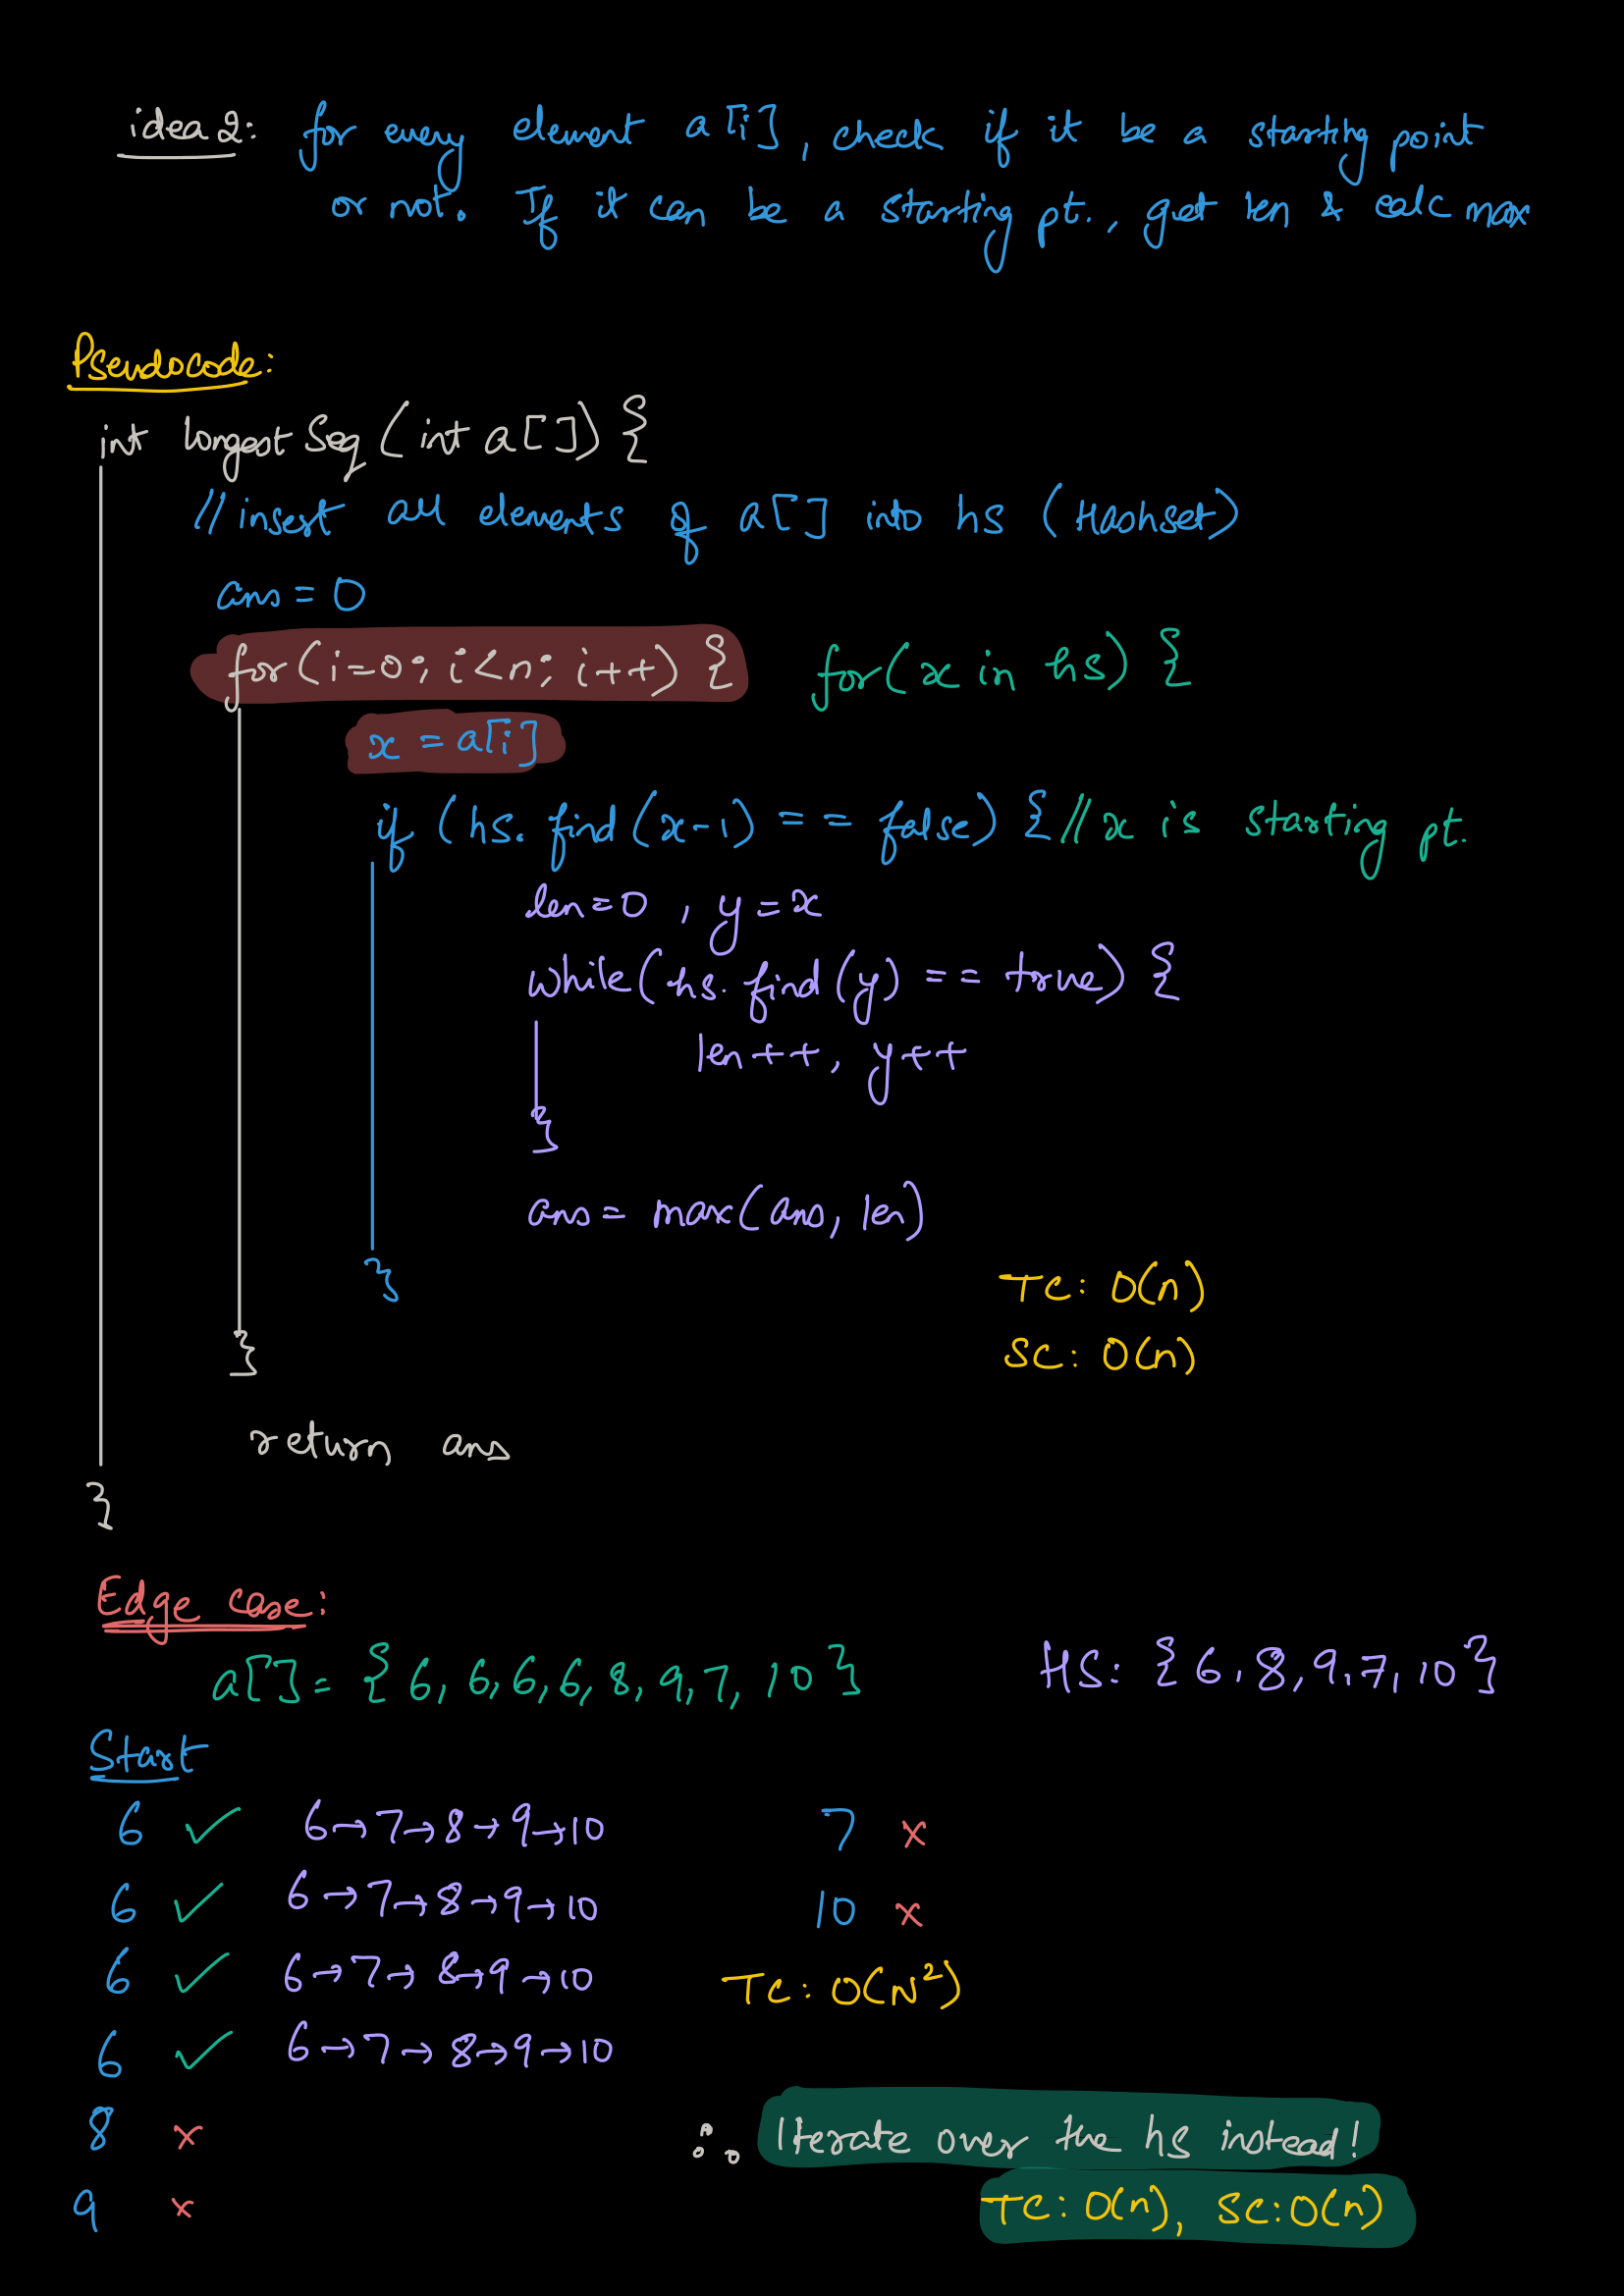 idea 2: for every element a[i], check if it be a starting point
or not. If it can be a starting pt., get len & calc max
Pseudocode:
int longestSeq (int a[]) {
// insert all elements of a[] into hs (Hashset)
ans = 0
for(i=0; i<n; i++) { for(x in hs) {
x = a[i]
if (hs.find(x-1) == false) { // x is starting pt.
len=0 , y=x
while(hs.find(y) == true) {
len++, y++
}
ans = max(ans, len)
}
TC: O(n)
SC: O(n)
}
return ans
}
Edge case:
a[] = {6, 6, 6, 6, 8, 9, 7, 10} HS: {6, 8, 9, 7, 10}
Start
6 ✓ 6→7→8→9→10 7 x
6 ✓ 6→7→8→9→10 10 x
6 ✓ 6→7→8→9→10 TC: O(N²)
6 ✓ 6→7→8→9→10
8 x ∴ Iterate over the hs instead!
9 x TC: O(n), SC: O(n)